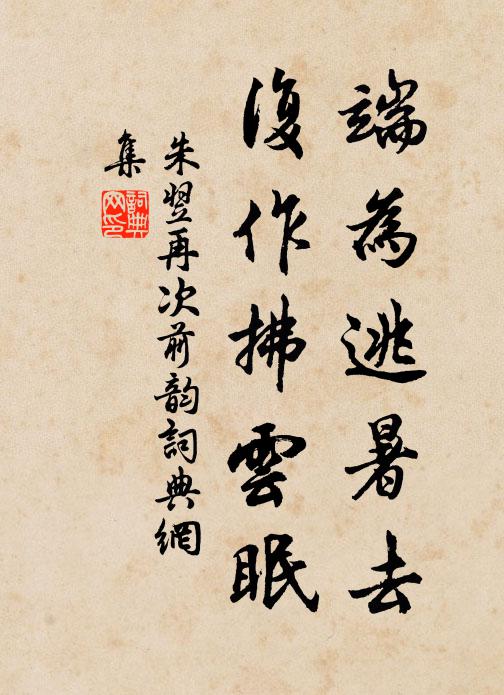 端為逃暑去
復作拂雲眠
朱翌再次前韵詞典網
集
詞典
网印